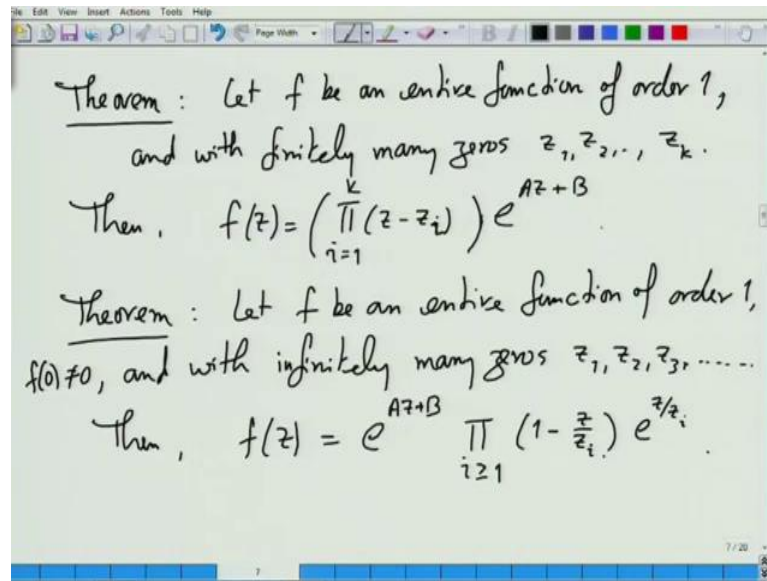 File Edit View Insert Actions Tools Help
Page Width
Theorem : Let f be an entire function of order 1,
and with finitely many zeros z₁, z₂, .., z_k.
Then, f(z) = (∏_{i=1}^{k} (z - z_i)) e^{Az+B}
Theorem : Let f be an entire function of order 1,
f(0)≠0, and with infinitely many zeros z₁, z₂, z₃, ......
Then, f(z) = e^{Az+B} ∏_{i≥1} (1 - z/z_i) e^{z/z_i}.
7/20
7